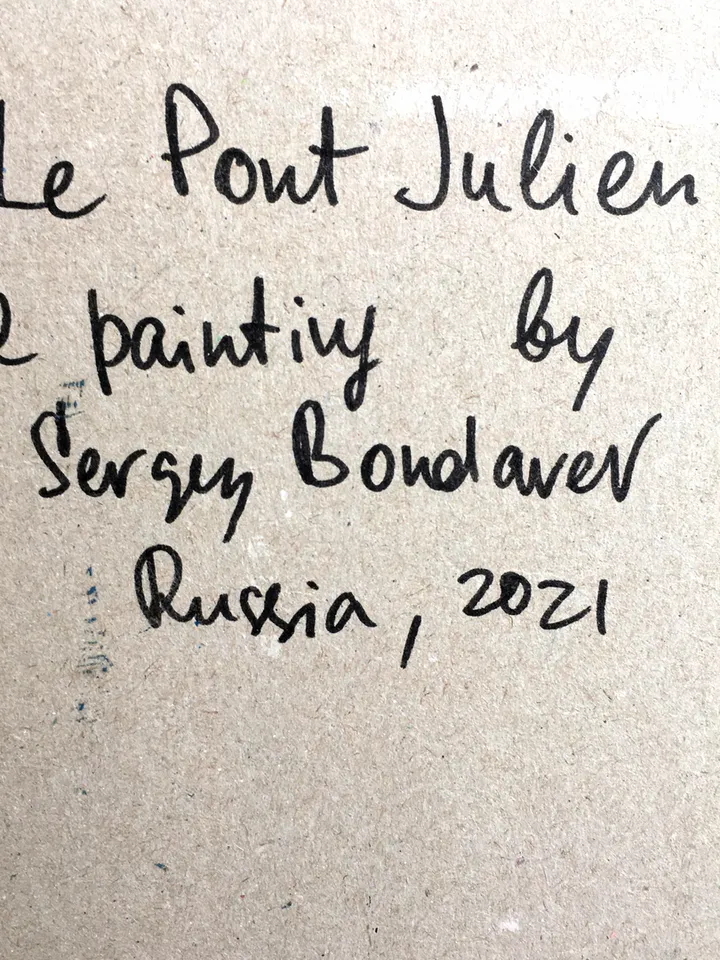 Le Pont Julien
a painting by
Sergey Bondarev
Russia, 2021